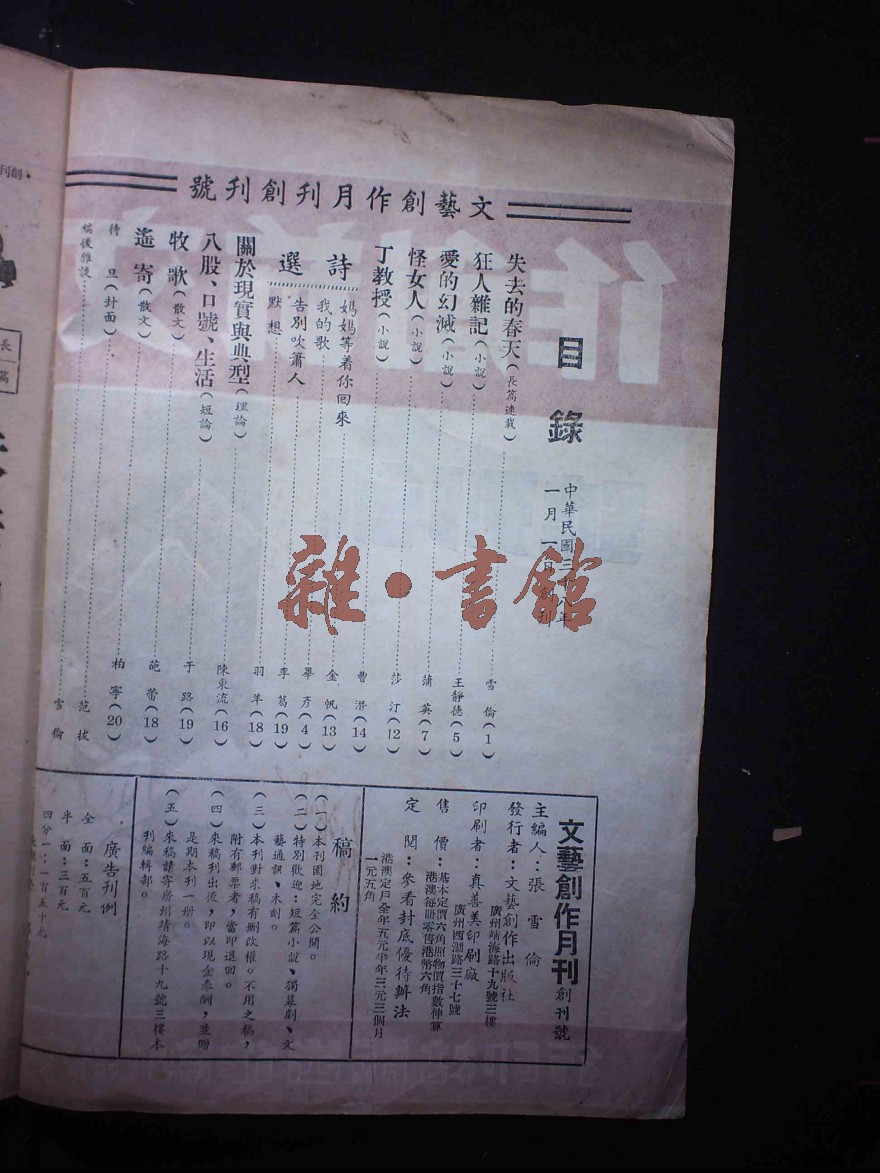 文藝創作月刊創刊號
目錄
中華民國三十八年
一月一日創刊
失去的春天(長篇連載)雪倫(1)
狂人雜記(小說)王靜德(5)
愛的幻滅(小說)蒲英(7)
怪女人(小說)莎汀(12)
丁教授(小說)曹潛(14)
詩選
媽媽等着你回來 金帆(13)
我的歌 畢彥(4)
告別吹簫人 李葛(19)
默想 羽羊(18)
關於現實與典型(理論)陳東流(16)
八股、口號、生活(短論)于路(19)
牧歌(散文)葩蕾(18)
遙寄(散文)柏寧(20)
待旦(封面)范拔
編後雜談 雪倫
文藝創作月刊創刊號
主編人:張雪倫
發行者:文藝創作出版社
廣州靖海路十九號三樓
印刷者:真善美印刷廠
廣州西湖路三十七號
售價:基本定價六角照物價指數伸算
港澳每冊零售港幣六角
定閱:參看封底優待辦法
港澳定戶全年五元半年三元三個月
一元五角
稿約
(一)本刊園地完全公開。
(二)特別歡迎:短篇小說、獨幕劇、文
藝通訊、木刻。
(三)本刊對來稿有刪改權。不用之稿,
附有郵票者,當即退回。
(四)來稿刊出後,即以現金奉酬,並贈
是期本刊一冊。
(五)來稿請寄廣州靖海路十九號三樓本
刊編輯部。
廣告刊例
全面:五百元
半面:三百元
四分一:一百五十元
雜·書館